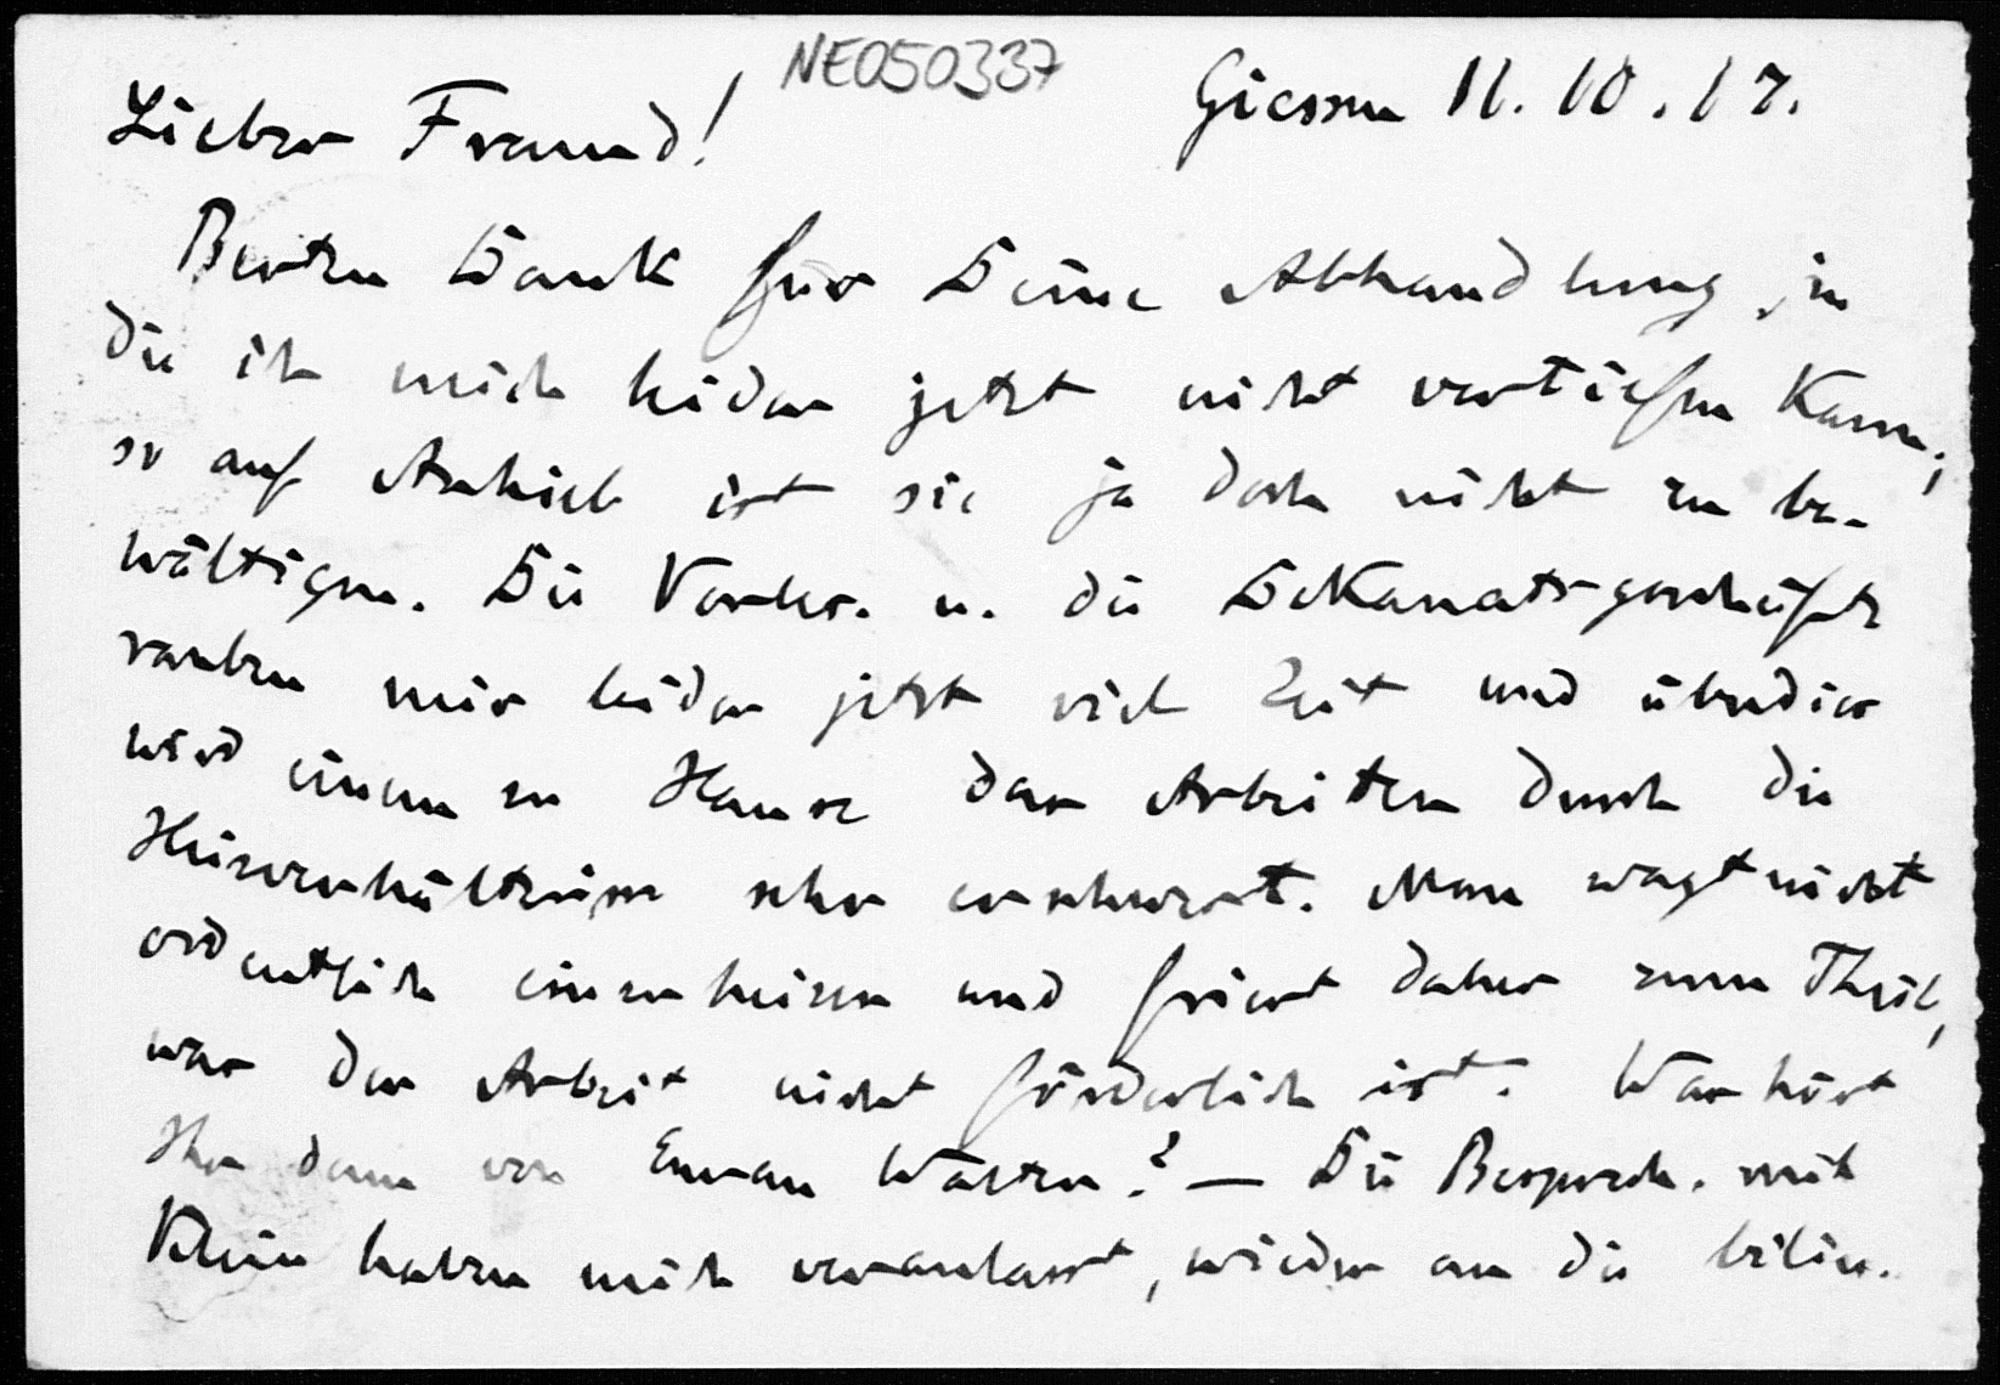 NE050337
Giessen 11.10.17.
Lieber Freund!
Besten Dank für Deine Abhandlung, in
die ich mich leider jetzt nicht vertiefen kann;
so auf Anhieb ist sie ja doch nicht zu be-
wältigen. Die Vorles. u. die Dekanatsgeschäfte
rauben mir leider jetzt viel Zeit und überdies
wird einem zu Hause das Arbeiten durch die
Heizverhältnisse sehr erschwert. Man wagt nicht
ordentlich einzuheizen und friert daher zum Theil,
was der Arbeit nicht förderlich ist. Was hört
Ihr denn von Eurem Walter? — Die Besprech. mit
Klein haben mich veranlasst, wieder an die bilin.